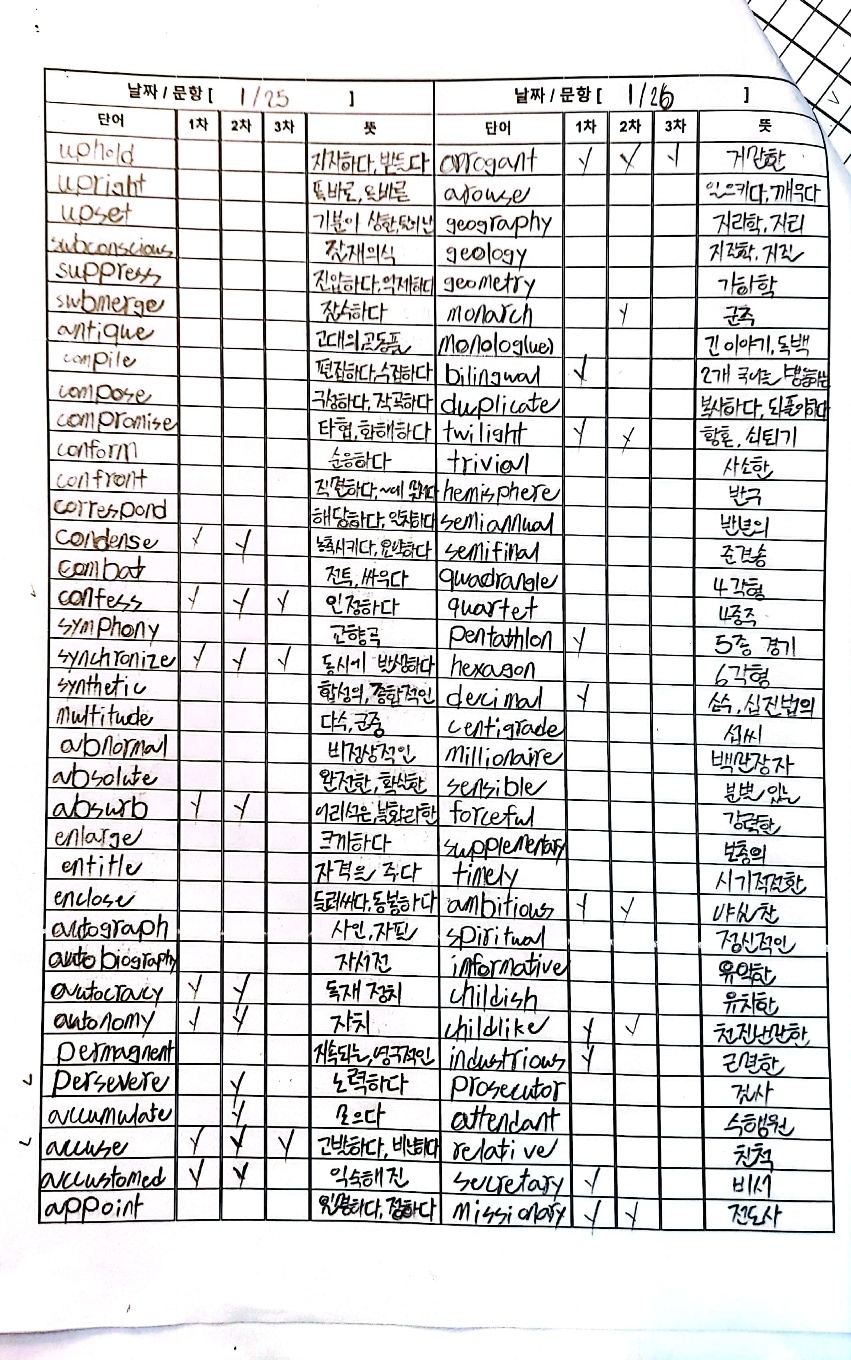 날짜 / 문항 [ 1/25 ] 날짜 / 문항 [ 1/26 ]
단어 1차 2차 3차 뜻 단어 1차 2차 3차 뜻
uphold 지지하다, 받들다 arrogant ✓ ✓ ✓ 거만한
upright 똑바로, 올바른 arouse 일으키다, 깨우다
upset 기분이 상한, geography 지리학, 지리
subconscious 잠재의식 geology 지질학, 지질
suppress 진압하다, 억제하다 geometry 기하학
submerge 잠수하다 monarch ✓ 군주
antique 고대의, 골동품 monolog(ue) 긴 이야기, 독백
compile 편집하다, 수집하다 bilingual ✓ 2개 국어를
compose 구성하다, 작곡하다 duplicate 복사하다, 되풀이하다
compromise 타협, 화해하다 twilight ✓ ✓ 황혼, 쇠퇴기
conform 순응하다 trivial 사소한
confront 직면하다, ~에 hemisphere 반구
correspond 해당하다, 일치하다 semiannual 반년의
condense ✓ ✓ 농축시키다, 요약하다 semifinal 준결승
combat 전투, 싸우다 quadrangle 4각형
✓ confess ✓ ✓ ✓ 인정하다 quartet 4중주
symphony 교향곡 pentathlon ✓ 5종 경기
synchronize ✓ ✓ ✓ 동시에 발생하다 hexagon 6각형
synthetic 합성의, 종합적인 decimal ✓ 소수, 십진법의
multitude 다수, 군중 centigrade 섭씨
abnormal 비정상적인 millionaire 백만장자
absolute 완전한, 확실한 sensible 분별 있는
absurb ✓ ✓ 어리석은, 불합리한 forceful 강력한
enlarge 크게하다 supplementary 보충의
entitle 자격을 주다 timely 시기적절한
enclose 둘러싸다, 동봉하다 ambitious ✓ ✓ 야심찬
autograph 사인, 자필 spiritual 정신적인
autobiography 자서전 informative 유익한
autocracy ✓ ✓ 독재 정치 childish 유치한
autonomy ✓ ✓ 자치 childlike ✓ ✓ 천진난만한
permagnent 지속되는, 영구적인 industrious ✓ 근면한
✓ persevere ✓ 노력하다 prosecutor 검사
accumulate ✓ 모으다 attendant 수행원
✓ accuse ✓ ✓ ✓ 고발하다, 비난하다 relative 친척
accustomed ✓ ✓ 익숙해진 secretary ✓ 비서
appoint 임명하다, 정하다 missionary ✓ ✓ 전도사